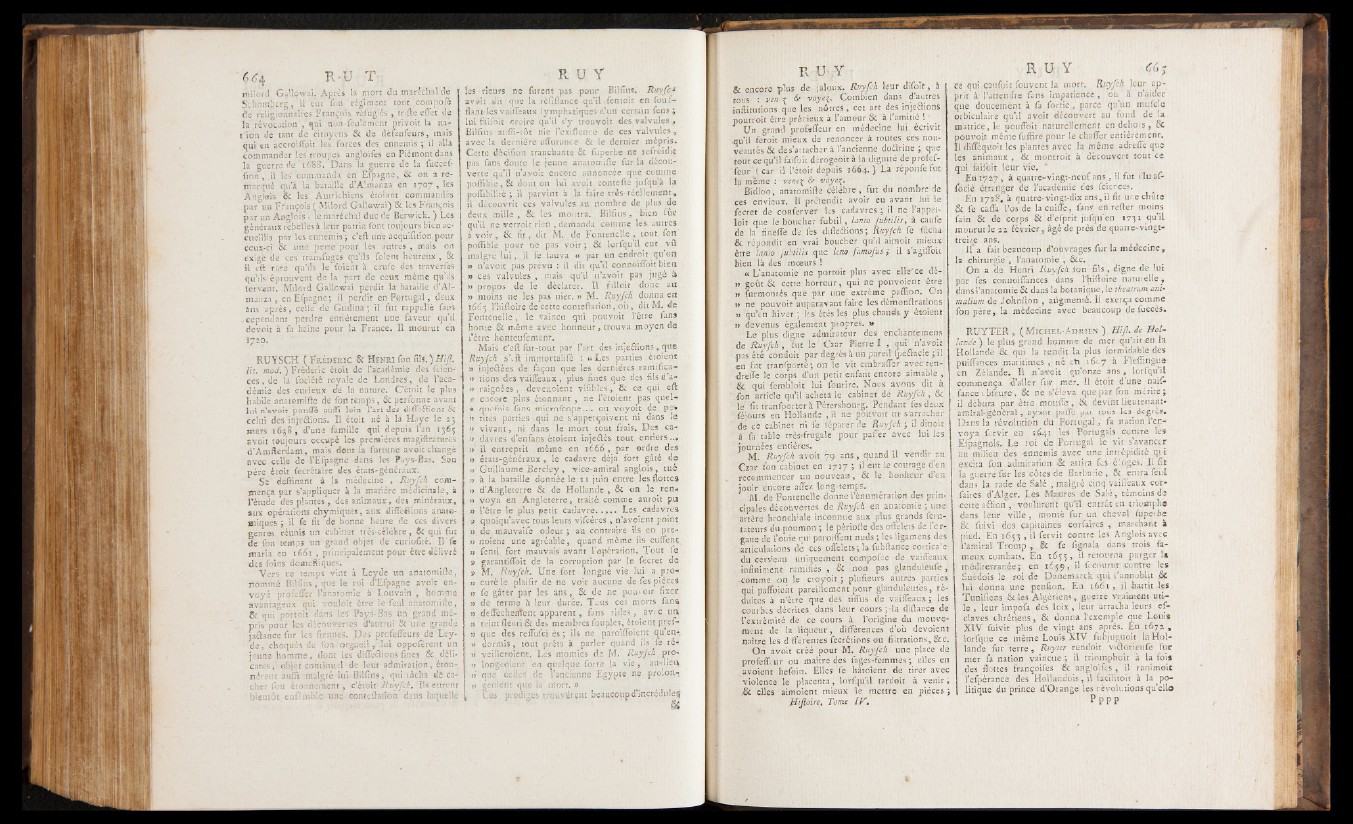 664 R U T
milord Gallowai. Après la mort du maréchal de
Schomberg, il eut son régiment tout composé
de religionnaires François réfugiés, triste effet de
la révocation, qui non-seulement privoit la na-
tion de tant de citoyens & de défenseurs, mais
qui en accroissoit les forces des ennemis ; il alla
commander les troupes angloises en Piémont dans
la guerre de 1688. Dans la guerre de la succes-
sion, il les commanda en Espagne, & on a re-
marqué qu'à la bataille d'Almanza en 1707, les
Anglois & les Autrichiens étoient commandés
par un François ( Milord Gallowai ) & les François
par un Anglois : le maréchal duc de Berwick. ) Les
généraux rebelles à leur patrie sont toujours bien ac-
cueillis par les ennemis ; c'est une acquisition pour
ceux-ci & une perte pour les autres, mais on
exige de ces transfuges qu'ils soient heureux, &
il est rare qu'ils le soient à cause des traverses
qu'ils éprouvent de la part de ceux même qu'ils
servent. Milord Gallowai perdit la bataille d'Al-
manza, en Espagne ; il perdit en Portugal, deux
ans après, celle de Gudina ; il fut rappellé sans
cependant perdre entièrement une faveur qu'il
devoit à sa haine pour la France. Il mourut en
1720.
RUYSCH ( FRÉDERIC & HENRI son fils. ) Hist.
lit. mod. ) Fréderic étoit de l'académie des scien-
ces, de la société royale de Londres, de l'aca-
démie des curieux de la nature. C'étoit le plus
habile anatomiste de son temps, & personne avant
lui n'avoit poussé aussi loin l'art des dissections &
celui des injections. Il étoit né à la Haye le 23
mars 1638, d'une famille qui depuis l'an 1365
avoit toujours occupé les premières magistratures
d'Amsterdam, mais dont la fortune avoit changé
avec celle de l'Espagne dans les Pays-Bas. Son
père étoit secrétaire des états-généraux.
Se destinant à la médecine, Ruysch com-
mença par s'appliquer à la matière médicinale, à
l'étude des plantes, des animaux, des minéraux,
aux opérations chymiques, aux dissections anato-
miques ; il se fit de bonne heure de ces divers
genres réunis un cabinet très-célebre, & qui fut
de son temps un grand objet de curiosité. Il se
maria en 1661, principalement pour être délivré
des soins domestiques.
Vers ce temps vint à Leyde un anatomiste,
nommé Bilsius, que le roi d'Espagne avoit en-
voyé professer l'anatomie à Louvain, homme
avantageux qui vouloit être le seul anatomiste,
& qui portoit dans les Pays-Bas un grand mé-
pris pour les découvertes d'autrui & une grande
jactance sur les siennes. Des professeurs de Ley-
de, choqués de son orgueil, lui opposèrent un
jeune homme, dont les dissections fines & déli-
cates, objet continuel de leur admiration, éton-
nèrent aussi malgré lui Bilsius, qui tâcha de ca-
cher son étonnement, c'étoit Ruysch. Ils eurent
bientôt ensemble une contestation dans laquelle
R U Y
les rieurs ne furent pas pour Bilsius. Ruysch
avoit dit que la résistance qu'il sentoit en souf-
flant les vaisseaux lymphatiques d'un certain sens,
lui faisoit croire qu'il s'y trouvoit des valvules,
Bilsius aussi-tôt nie l'existence de ces valvules,
avec la dernière assurance & le dernier mépris.
Cette décision tranchante & superbe ne refroidit
pas sans doute le jeune anatomiste sur la décou-
verte qu'il n'avoit encore annoncée que comme
possible, & dont on lui avoit contesté jusqu'à la
possibilité ; il parvint à la faire très-réellement,
il découvrit ces valvules au nombre de plus de
deux mille, & les montra. Bilsius, bien sûr
qu'il ne verroit rien, demanda comme les autres
à voir, & fit, dit M. de Fontenelle, tout son
possible pour ne pas voir ; & lorsqu'il eut vû
malgré lui, il se sauva « par un endroit qu'on
» n'avoit pas prévu : il dit qu'il connoissoit bien
» ces valvules, mais qu'il n'avoit pas jugé à
» propos de le déclarer. Il falloit donc au
» moins ne les pas nier. » M. Ruysch donna en
1665 l'histoire de cette contestation, où, dit M. de
Fontenelle, le vaincu qui pouvoit l'être sans
honte & même avec honneur, trouva moyen de
l'être honteusement.
Mais c'est sur-tout par l'art des injections, que
Ruysch s'est immortalisé : « Les parties étoient
» injectées de façon que les dernières ramifica-
» tions des vaisseaux, plus fines que des fils d'a-
» raignées, devenoient visibles, & ce qui est
» encore plus étonnant, ne l'étoient pas quel-
» quefois sans microscope... on voyoit de pe-
» tites parties qui ne s'apperçoivent ni dans le
» vivant, ni dans le mort tout frais. Des ca-
» davres d'enfans étoient injectés tout entiers...
» il entreprit même en 1666, par ordre des
» états-généraux, le cadavre déja fort gâté de
» Guillaume Bercley, vice-amiral anglois, tué
» à la bataille donnée le 11 juin entre les flottes
» d'Angleterre & de Hollande, & on le ren-
» voya en Angleterre, traité comme auroit pu
» l'être le plus petit cadavre..... Les cadavres
» quoiqu'avec tous leurs viscères, n'avoient point
» de mauvaise odeur ; au contraire ils en pre-
» noient une agréable, quand même ils eussent
» senti fort mauvais avant l'opération. Tout se
» garantissoit de la corruption par le secret de
» M. Ruysch. Une fort longue vie lui a pro-
» curé le plaisir de ne voir aucune de ses pièces
» se gâter par les ans, & de ne pouvoir fixer
» de terme à leur durée. Tous ces morts sans
» dessèchement apparent, sans rides, avec un
» teint fleuri & des membres souples, étoient pres-
» que des ressuscités ; ils ne paroissoient qu'en-
» dormis, tout prêts à parler quand ils se ré-
» veilleroient. Les momies de M. Ruysch pro-
» longeoient en quelque sorte la vie, au-lieu
» que celles de l'ancienne Egypte ne prolon-
» geoient que la mort. »
Ces prodiges trouvèrent beaucoup d'incrédules
&
R U Y
& encore plus de jaloux. Ruysch leur disoit, à
tous : venez & voyez. Combien dans d'autres
institutions que les nôtres, cet art des injections
pourroit être précieux à l'amour & à l'amitié !
Un grand professeur en médecine lui écrivit
qu'il feroit mieux de renoncer à toutes ces nou-
veautés & de s'attacher à l'ancienne doctrine ; que
tout ce qu'il faisoit dérogeoit à la dignité de profes-
seur ( car il l'étoit depuis 1664. ) La réponse fut
la même : venez & voyez.
Bidloo, anatomiste célèbre, fut du nombre de
ces envieux. Il prétendit avoir eu avant lui le
secret de conserver les cadavres ; il ne l'appel-
loit que le boucher subtil, lanio subtilis, à cause
de la finesse de ses dissections ; Ruysch se fâcha
& répondit en vrai boucher qu'il aimoit mieux
être lanio subtilis que leno famosus ; il s'agissoit
bien là des mœurs !
« L'anatomie ne portoit plus avec elle ce dé-
» goût & cette horreur, qui ne pouvoient être
» surmontés que par une extrême passion. On
» ne pouvoit auparavant faire les démonstrations
» qu'en hiver ; les étés les plus chauds y étoient
» devenus également propres. »
Le plus digne admirateur des enchantemens
de Ruysch, fut le Czar Pierre I, qui n'avoit
pas été conduit par degrés à un pareil spectacle ; il
en fut transporté ; on le vit embrasser avec ten-
dresse le corps d'un petit enfant encore aimable,
& qui sembloit lui sourire. Nous avons dit à
son article qu'il acheta le cabinet de Ruysch, &
le fit transporter à Pétersbourg. Pendant ses deux
séjours en Hollande, il ne pouvoit ni s'arracher
de ce cabinet ni se séparer de Ruysch ; il dînoit
à sa table très-frugale pour passer avec lui les
journées entières.
M. Ruysch avoit 79 ans, quand il vendit au
Czar son cabinet en 1717 ; il eut le courage d'en
recommencer un nouveau, & le bonheur d'en
jouir encore assez long-temps.
M. de Fontenelle donne l'énumération des prin-
cipales découvertes de Ruysch en anatomie ; une
artère bronchiale inconnue aux plus grands scru-
tateurs du poumon ; le périoste des osselets de l'or-
gane de l'ouïe qui paroissent nuds ; les ligamens des
articulations de ces osselets ; la substance corticale
du cerveau uniquement composée de vaisseaux
infiniment ramifiés, & non pas glanduleuse,
comme on le croyoit ; plusieurs autres parties
qui passoient pareillement pour glanduleuses, ré-
duites à n'être que des tissus de vaisseaux ; les
courbes décrites dans leur cours ; la distance de
l'extrêmité de ce cours à l'origine du mouve-
ment de la liqueur, différences d'où devoient
naître les différentes secrétions ou filtrations, &c.
On avoit créé pour M. Ruysch une place de
professeur ou maître des sages-femmes ; elles en
avoient besoin. Elles se hâtoient de tirer avec
violence le placenta, lorsqu'il tardoit à venir,
& elles aimoient mieux le mettre en pièces ;
Histoire. Tome IV.
R U Y 665
ce qui causoit souvent la mort. Ruysch leur ap-
prit à l'attendre sans impatience, ou à n'aider
que doucement à sa sortie, parce qu'un muscle
orbiculaire qu'il avoit découvert au fond de la
matrice, le poussoit naturellement en dehors, &
pouvoit même suffire pour le chasser entièrement.
Il disséquoit les plantes avec la même adresse que
les animaux, & montroit à découvert tout ce
qui faisoit leur vie.
En 1727, à quatre-vingt-neuf ans, il fut élu as-
socié étranger de l'académie des sciences.
En 1728, à quatre-vingt-dix ans, il fit une chûte
& se cassa l'os de la cuisse, sans en rester moins
sain & de corps & d'esprit jusqu'en 1731 qu'il
mourut le 22 février, âgé de près de quatre-vingt-
treize ans.
Il a fait beaucoup d'ouvrages sur la médecine,
la chirurgie, l'anatomie, &c.
On a de Henri Ruysch son fils, digne de lui
par ses connoissances dans l'histoire naturelle,
dans l'anatomie & dans la botanique, le theatrum ani-
malium de Johnston, augmenté. Il exerça comme
son père, la médecine avec beaucoup de succès.
RUYTER, ( MICHEL-ADRIEN ) Hist. de Hol-
lande ) le plus grand homme de mer qu'ait eu la
Hollande & qui la rendit la plus formidable des
puissances maritimes, né en 1607 à Flessingue
en Zélande. Il n'avoit qu'onze ans, lorsqu'il
commença d'aller sur mer. Il étoit d'une nais-
sance obscure, & ne s'éleva que par son mérite ;
il débuta par être mousse, & devint lieutenant-
amiral-général, ayant passé par tous les degrés.
Dans la révolution du Portugal, sa nation l'en-
voya servir en 1641 les Portugais contre les
Espagnols. Le roi de Portugal le vit s'avancer
au milieu des ennemis avec une intrépidité qui
excita son admiration & attira ses éloges. Il fit
la guerre sur les côtes de Barbarie, & entra seul
dans la rade de Salé, malgré cinq vaisseaux cor-
saires d'Alger. Les Maures de Salé, témoins de
cette action, voulurent qu'il entrât en triomphe
dans leur ville, monté sur un cheval superbe
& suivi des capitaines corsaires, marchant à
pied. En 1653, il servit contre les Anglois avec
l'amiral Tromp, & se signala dans trois fa-
meux combats. En 1655, il retourna purger la
méditerranée ; en 1659, il secourut contre les
Suédois le roi de Danemarck qui l'annoblit &
lui donna une pension. En 1661, il battit les
Tunisiens & les Algériens, guerre vraiment uti-
le, leur imposa des loix, leur arracha leurs es-
claves chrétiens, & donna l'exemple que Louis
XIV suivit plus de vingt ans après. En 1672,
lorsque ce même Louis XIV subjuguoit la Hol-
lande sur terre, Ruyter rendoit victorieuse sur
mer sa nation vaincue ; il triomphoit à la fois
des flottes françoises & angloises, il ranimoit
l'espérance des Hollandois, il facilitoit à la po-
litique du prince d'Orange les révolutions qu'elle
P p p p